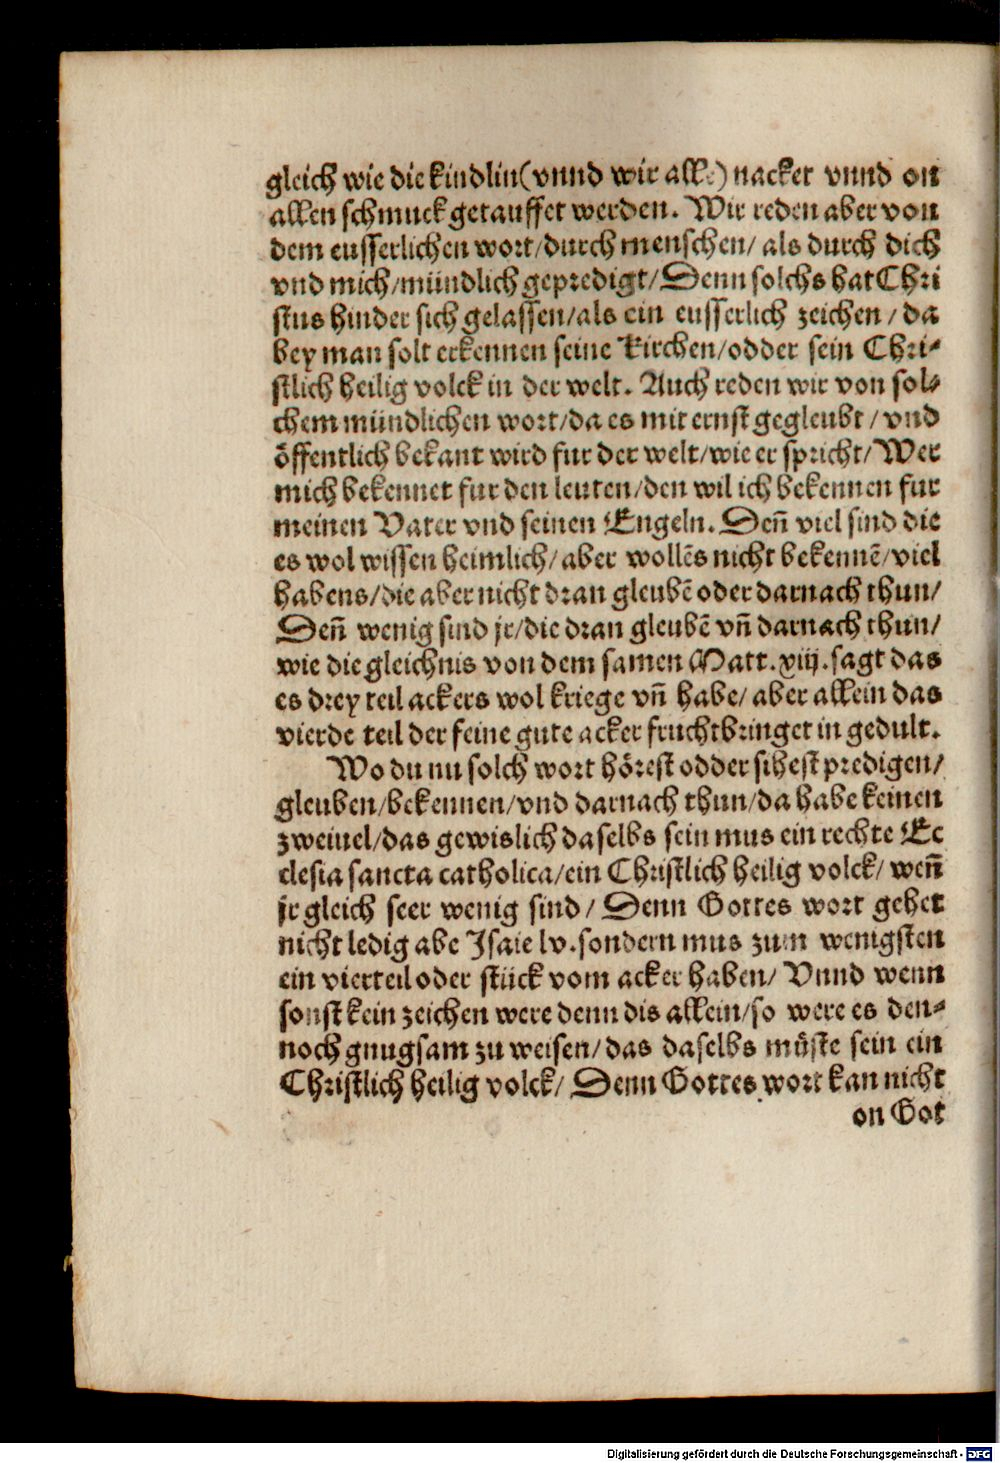 gleich wie die kindlin (vnnd wir alle) nacket vnnd on
allen schmuck getauffet werden. Wir reden aber von
dem eusserlichen wort/durch menschen/ als durch dich
vnd mich/mündlich gepredigt/Denn solchs hat Chri
stus hinder sich gelassen/als ein eusserlich zeichen/ da
bey man solt erkennen seine Kirchen/odder sein Chri-
stlich heilig volck in der welt. Auch reden wir von sol-
chem mündlichen wort/da es mit ernst gegleubt/vnd
öffentlich bekant wird fur der welt/wie er spricht/Wer
mich bekennet fur den leuten/den wil ich bekennen fur
meinen Vater vnd seinen Engeln. Deñ viel sind die
es wol wissen heimlich/aber wollẽs nicht bekennẽ/viel
habens/die aber nicht dran gleubẽ oder darnach thun/
Deñ wenig sind jr/die dran gleubẽ vñ darnach thun/
wie die gleichnis von dem samen Matt.xiij.sagt das
es drey teil ackers wol kriege vñ habe/aber allein das
vierde teil der feine gute acker frucht bringet in gedult.
Wo du nu solch wort hörest odder sihest predigen/
gleuben/bekennen/vnd darnach thun/da habe keinen
zweiuel/das gewislich daselbs sein mus ein rechte Ec
clesia sancta catholica/ein Christlich heilig volck/ weñ
jr gleich seer wenig sind/ Denn Gottes wort gehet
nicht ledig abe Isaie lv.sondern mus zum wenigsten
ein vierteil oder stück vom acker haben/ Vnnd wenn
sonst kein zeichen were denn dis allein/so were es den-
noch gnugsam zu weisen/das daselbs müste sein ein
Christlich heilig volck/ Denn Gottes wort kan nicht
on Got
Digitalisierung gefördert durch die Deutsche Forschungsgemeinschaft - DFG